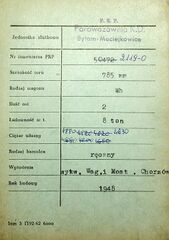 P. K. P.
Jednostka służbowa
Parowozownia K.D.
Bytom-Maciejkowice
Nr inwentarza PKP 2119-0
Szerokość toru 785 mm
Rodzaj wagonu Wh
Ilość osi 2
Ładowność w t. 8 ton
Ciężar własny 4830
Rodzaj hamulca ręczny
Wytwórnia Wytw. Wag. i Most. Chorzów
Rok budowy 1948